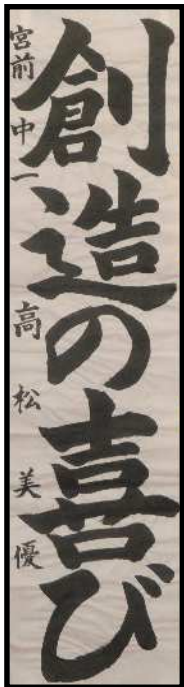 創造の喜び
宮前中一 高松美優